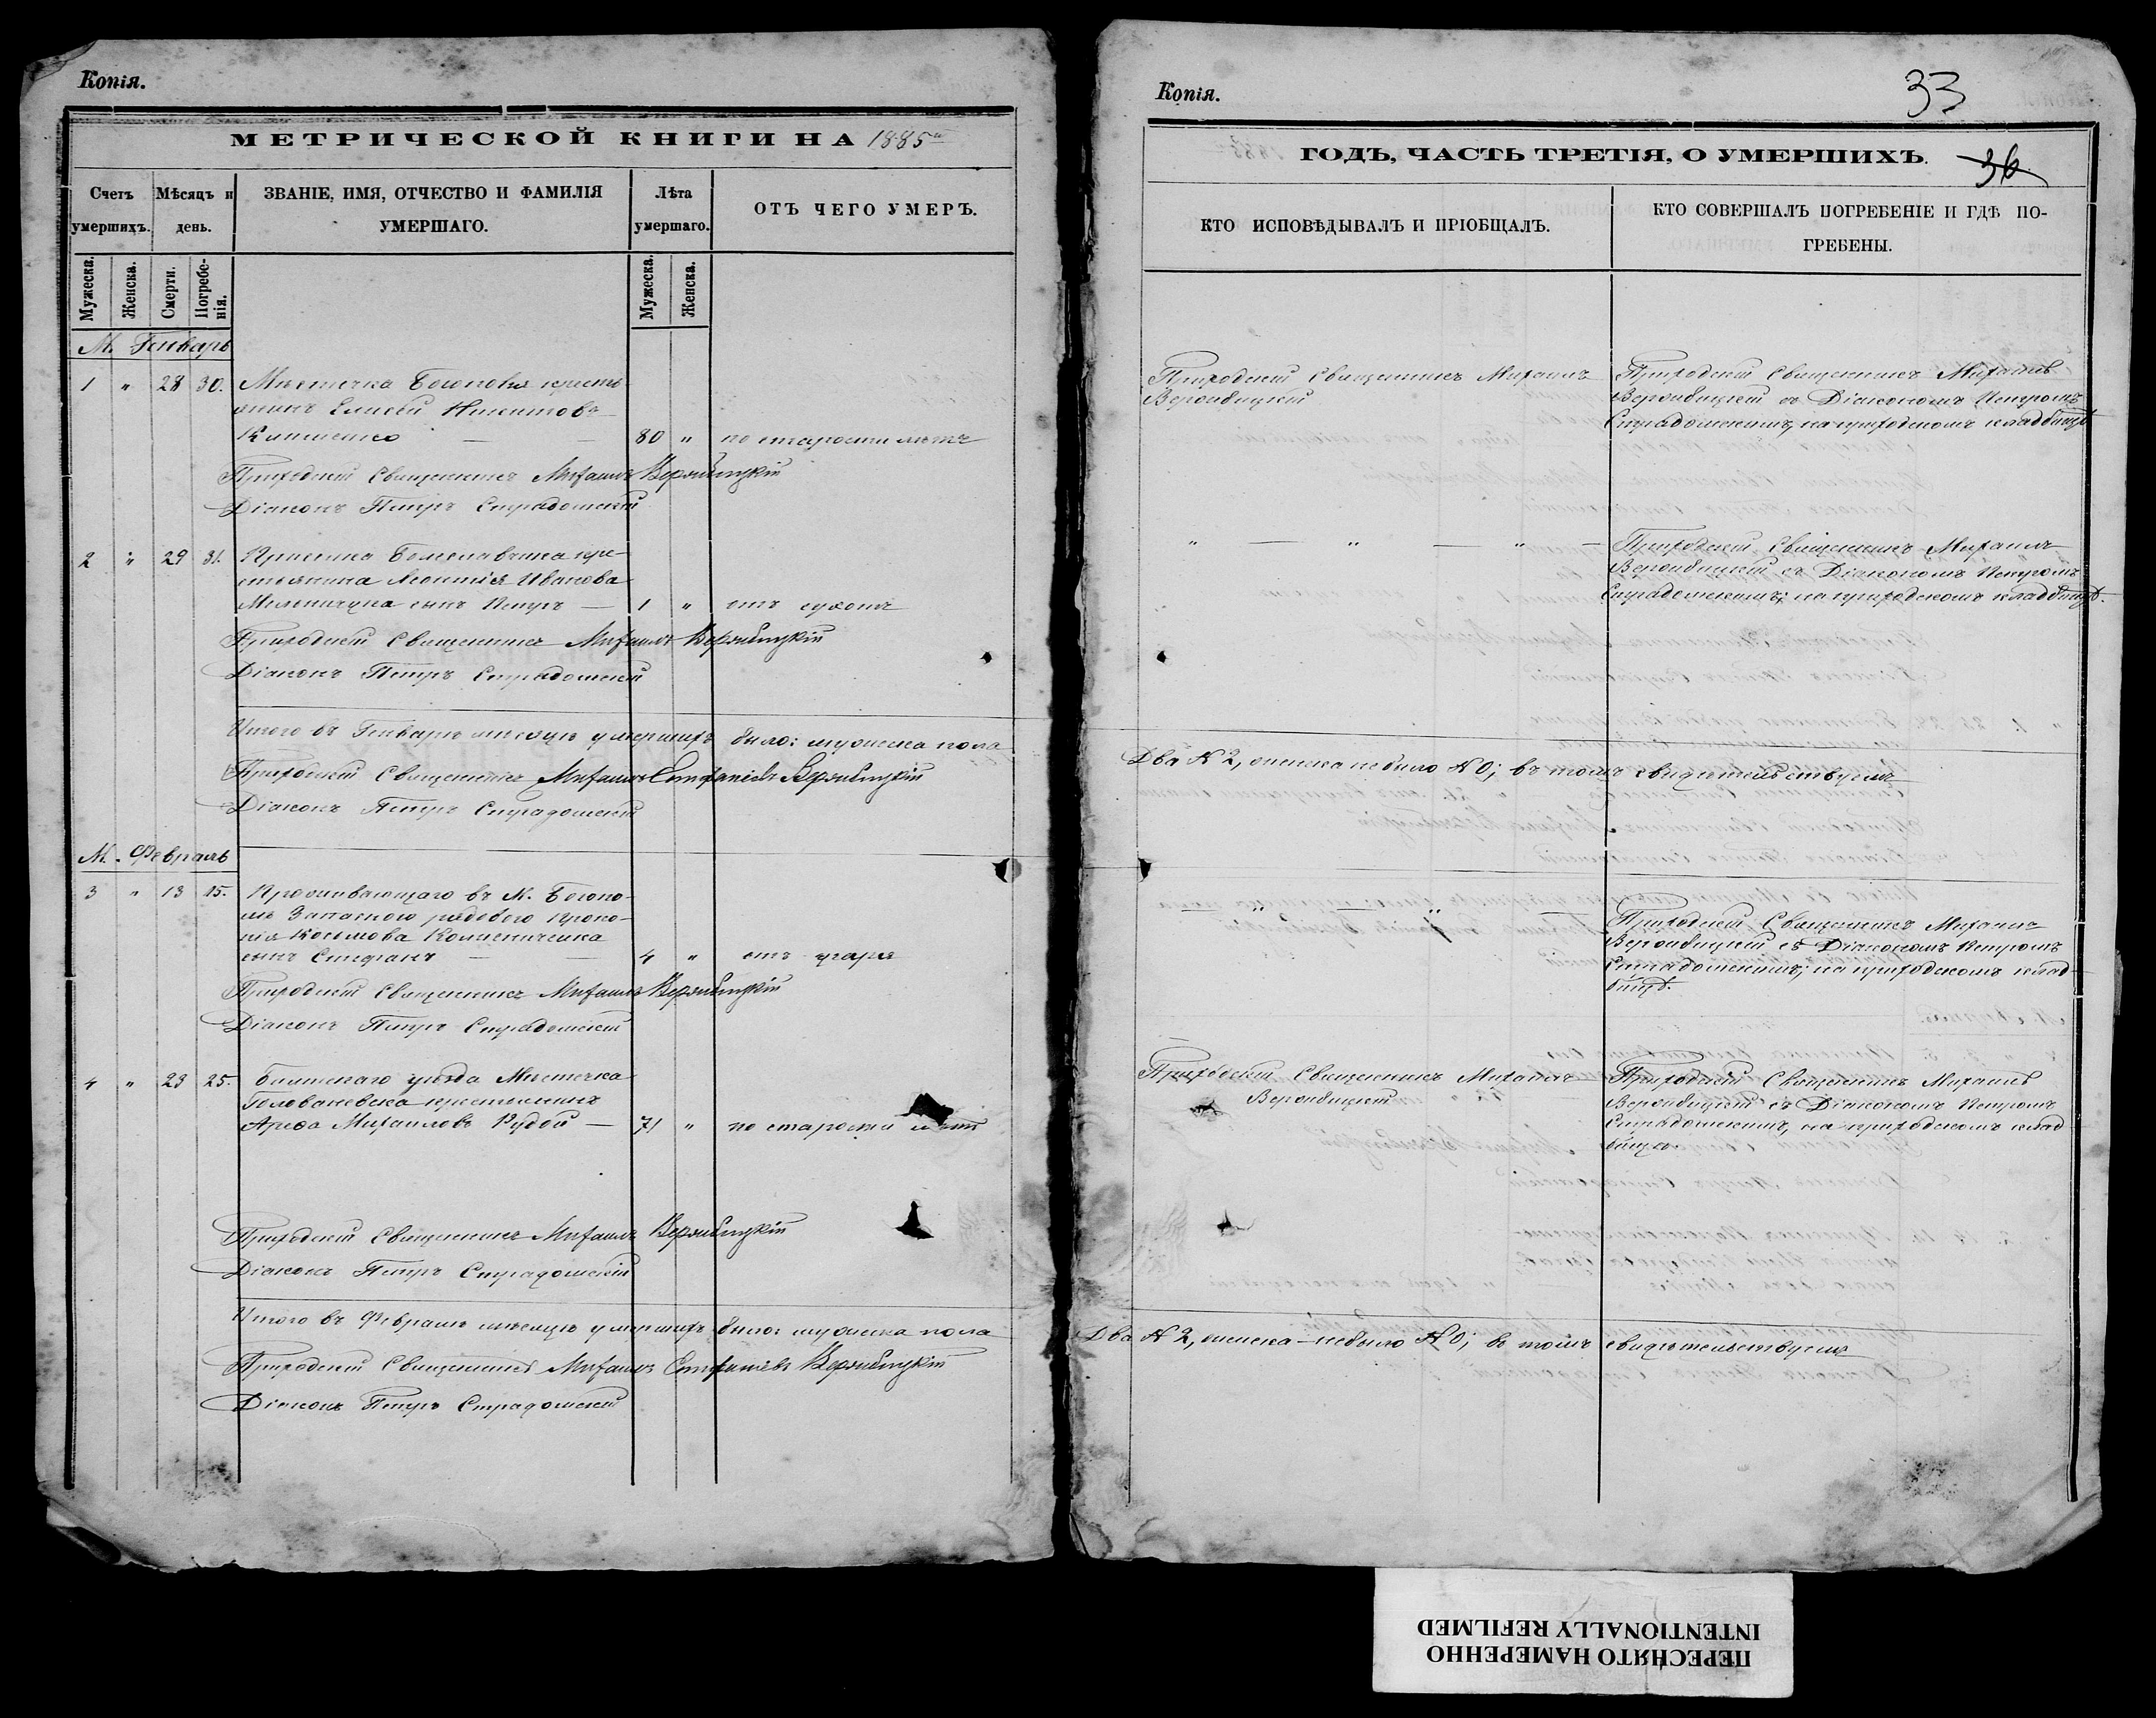 Копія.
МЕТРИЧЕСКОЙ КНИГИ НА 1885
Счетъ умершихъ.
Мѣсяцъ и день.
ЗВАНІЕ, ИМЯ, ОТЧЕСТВО И ФАМИЛІЯ УМЕРШАГО.
Лѣта умершаго.
ОТЪ ЧЕГО УМЕРЪ.
Мужеска.
Женска.
Смерти.
Погребенія.
Мужеска.
Женска.
М. Генварь
1 " 28 30. Мѣстечка Богополя кресть-
янинъ Елисей Никитовъ
80 " по старости лѣтъ
Приходскій Священникъ Михаилъ Вержбицкій
Діаконъ Петръ Страдомскій
2 " 29 31. кре-
стьянина Леонтія Иванова
Мельничука сынъ Петръ — 1 " отъ сухотъ
Приходскій Священникъ Михаилъ Вержбицкій
Діаконъ Петръ Страдомскій
Итого въ Генварѣ мѣсяцѣ умершихъ было: мужеска пола
Приходскій Священникъ Михаилъ Стефаніевъ Вержбицкій
Діаконъ Петръ Страдомскій
М. Февраль
3 " 13 15. Проживающаго въ М. Богопо-
лѣ Запаснаго рядоваго Проко-
пія Козьмова
сынъ Стефанъ — 4 " отъ угара
Приходскій Священникъ Михаилъ Вержбицкій
Діаконъ Петръ Страдомскій
4 " 23 25. Балтскаго уѣзда Мѣстечка
Голованевска крестьянинъ
Михаиловъ Рудой — 71 " по старости лѣтъ
Приходскій Священникъ Михаилъ Вержбицкій
Діаконъ Петръ Страдомскій
Итого въ Февралѣ мѣсяцѣ умершихъ было: мужеска пола
Приходскій Священникъ Михаилъ Стефаніевъ Вержбицкій
Діаконъ Петръ Страдомскій
Копія.
33
ГОДЪ, ЧАСТЬ ТРЕТІЯ, О УМЕРШИХЪ.
36
КТО ИСПОВѢДЫВАЛЪ И ПРІОБЩАЛЪ.
КТО СОВЕРШАЛЪ ПОГРЕБЕНІЕ И ГДѢ ПО-
ГРЕБЕНЫ.
Приходскій Священникъ Михаилъ
Вержбицкій
Приходскій Священникъ Михаилъ
Вержбицкій съ Діакономъ Петромъ
Страдомскимъ, на приходскомъ кладбищѣ
" — " — " —
Приходскій Священникъ Михаилъ
Вержбицкій съ Діакономъ Петромъ
Страдомскимъ; на приходскомъ кладбищѣ.
Два № 2, женска не было № 0; въ томъ свидѣтельствуемъ
Приходскій Священникъ Михаилъ
Вержбицкій съ Діакономъ Петромъ
Страдомскимъ; на приходскомъ клад-
бищѣ.
Приходскій Священникъ Михаилъ
Вержбицкій
Приходскій Священникъ Михаилъ
Вержбицкій съ Діакономъ Петромъ
Страдомскимъ, на приходскомъ клад-
бищѣ.
Два № 2, женска — не было № 0; въ томъ свидѣтельствуемъ
ПЕРЕСНЯТО НАМЕРЕННО
INTENTIONALLY REFILMED